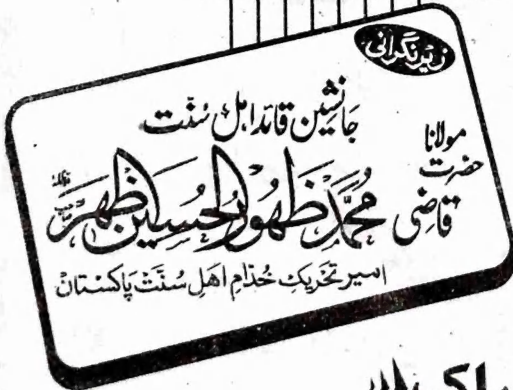 زیر نگرانی
جانشین قائد اہل سُنّت
حضرت مولانا قاضی
مُحمَّد ظہورُ الحُسین اظہر
امیر تحریک خُدّامِ اھلِ سُنّت پاکستان